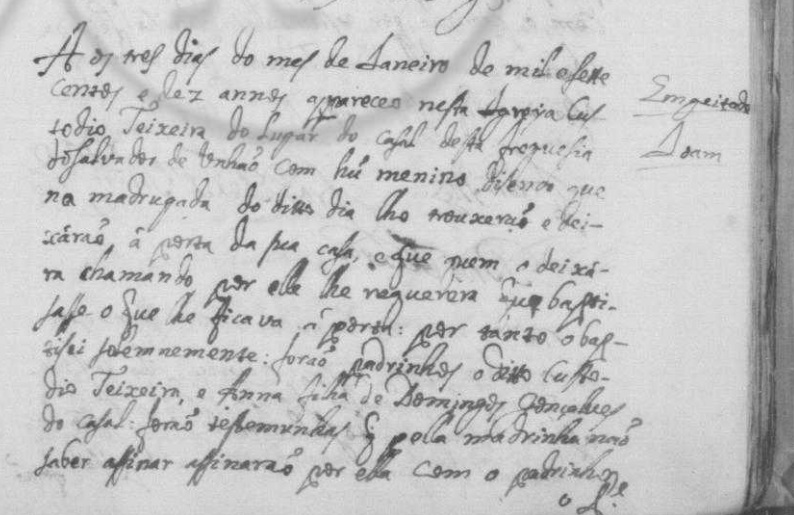 Aos tres dias do mes de Janeiro de mil e sette
centos e dez annos apareceo nesta Igreja Cus-
todio Teixeira do lugar do casal desta freguesia
do salvador de Unhaõ com hũ menino disendo que
na madrugada do ditto dia lho trouxeraõ e dei-
xáraõ á porta da sua casa, e que quem o deixá-
ra chamando por elle lhe requerera que bapti-
sasse o que lhe ficava á porta: por tanto o bap-
tisei solemnemente: foraõ padrinhos o ditto Custo-
dio Teixeira, e Anna filha de Domingos Gonçalves
do casal: foraõ testemunhas q̃ pela madrinha naõ
saber assinar assinaraõ por ella com o padrinho
o P.e
Emgeitado
Joam